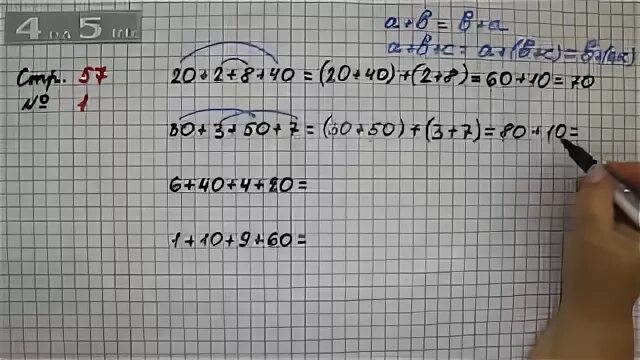 4 на 5 inc
a+b=b+a
a+b+c=a+(b+c)=b+(a+c)
Стр. 57
№ 1
20+2+8+40=(20+40)+(2+8)=60+10=70
30+3+50+7=(30+50)+(3+7)=80+10=
6+40+4+20=
1+10+9+60=